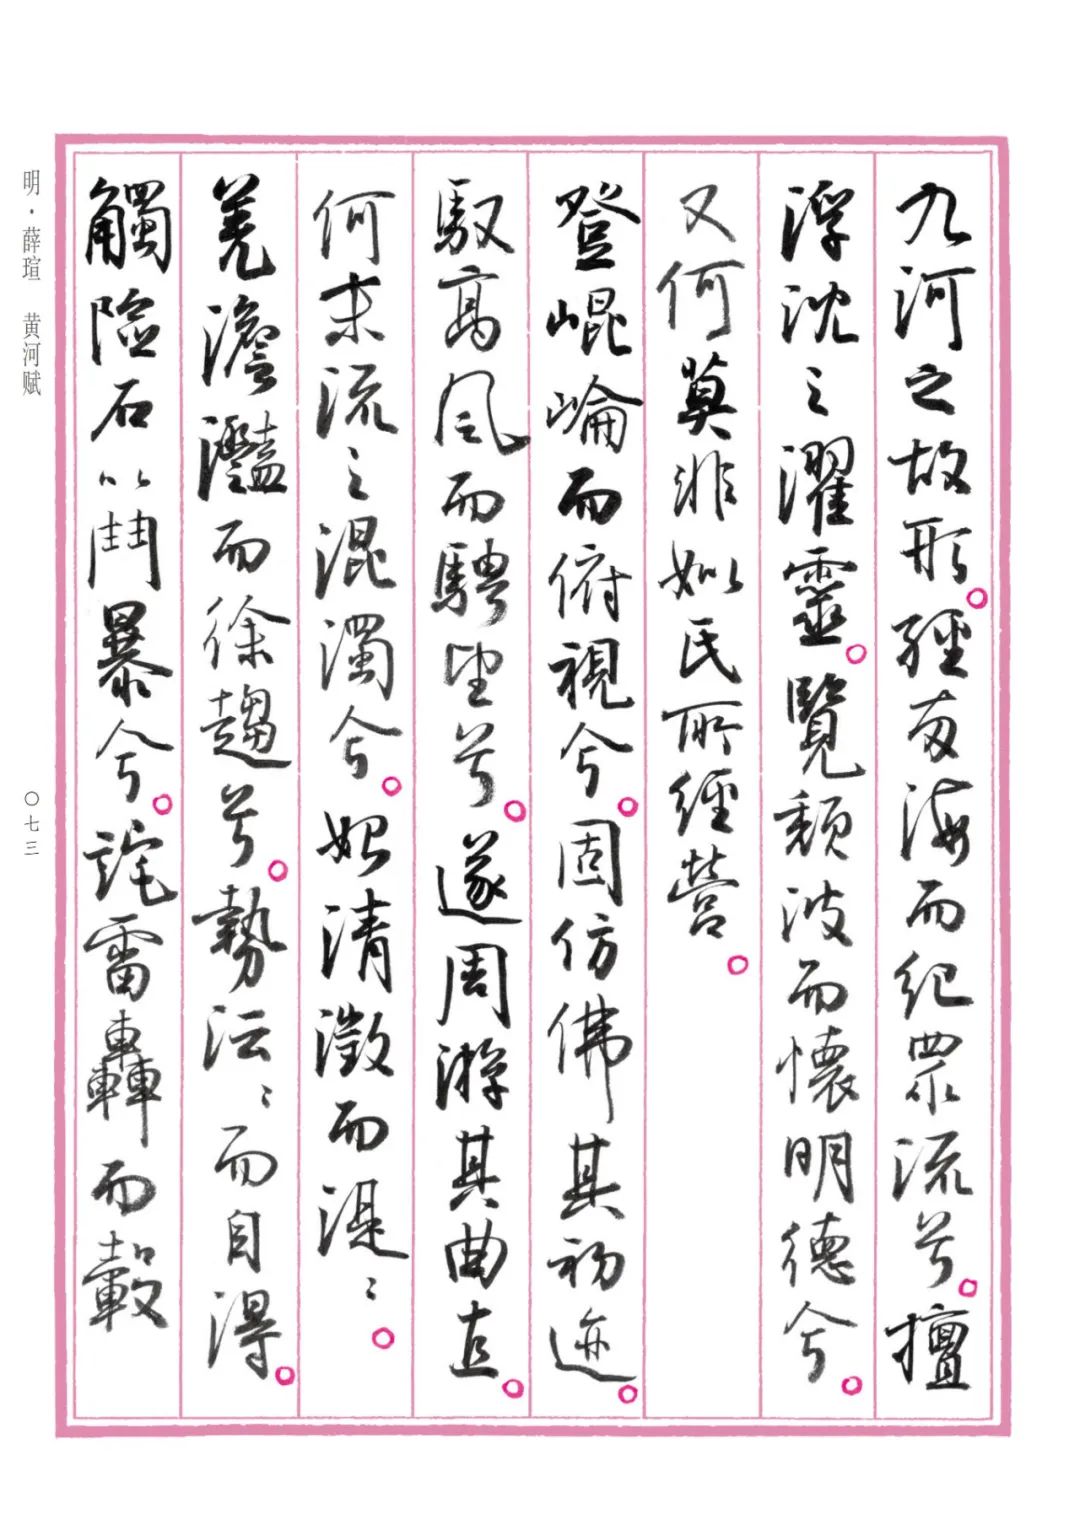 九河之故形。經南海而紀眾流兮。擅
浮沈之濯靈。覽頹波而懷明德兮。
又何莫非姒氏所經營。
登崐崘而俯視兮。固仿佛其初迹。
馭高風而騁望兮。遂周游其曲直。
何末流之混濁兮。始清澂而湜〻。
羌澹灩而徐趨兮。勢沄〻而自得。
觸險石以鬥暴兮。詫雷轟而轂
明·薛瑄 黄河赋
〇七三